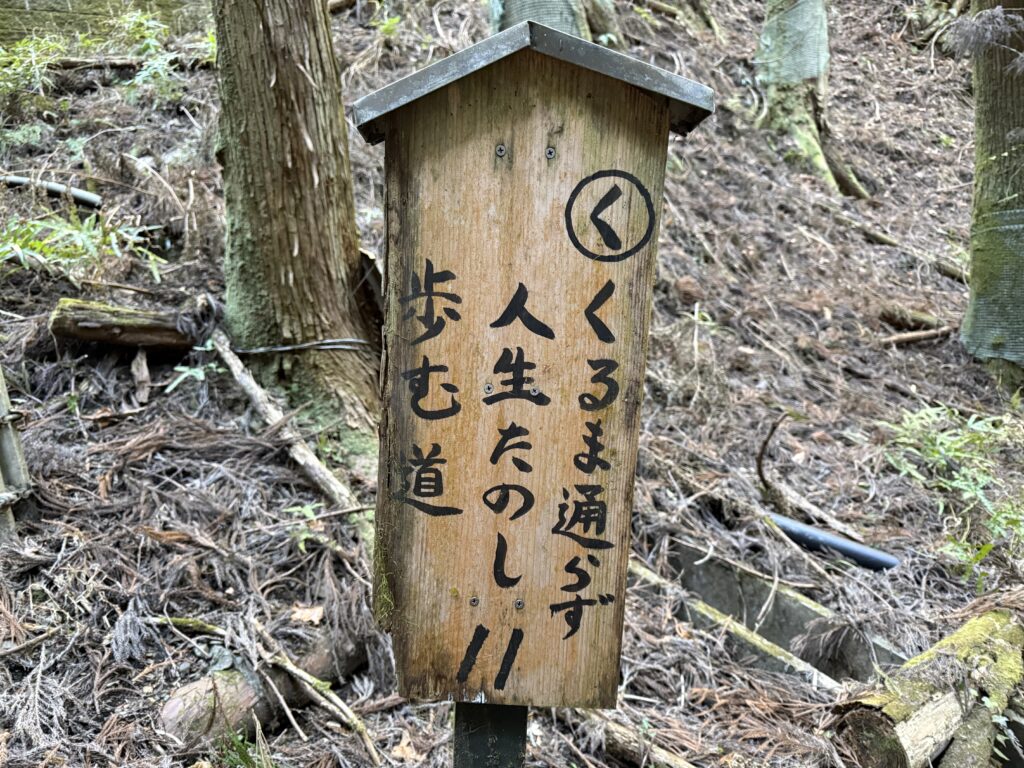 く
くるま通らず
人生たのし
歩む道
11